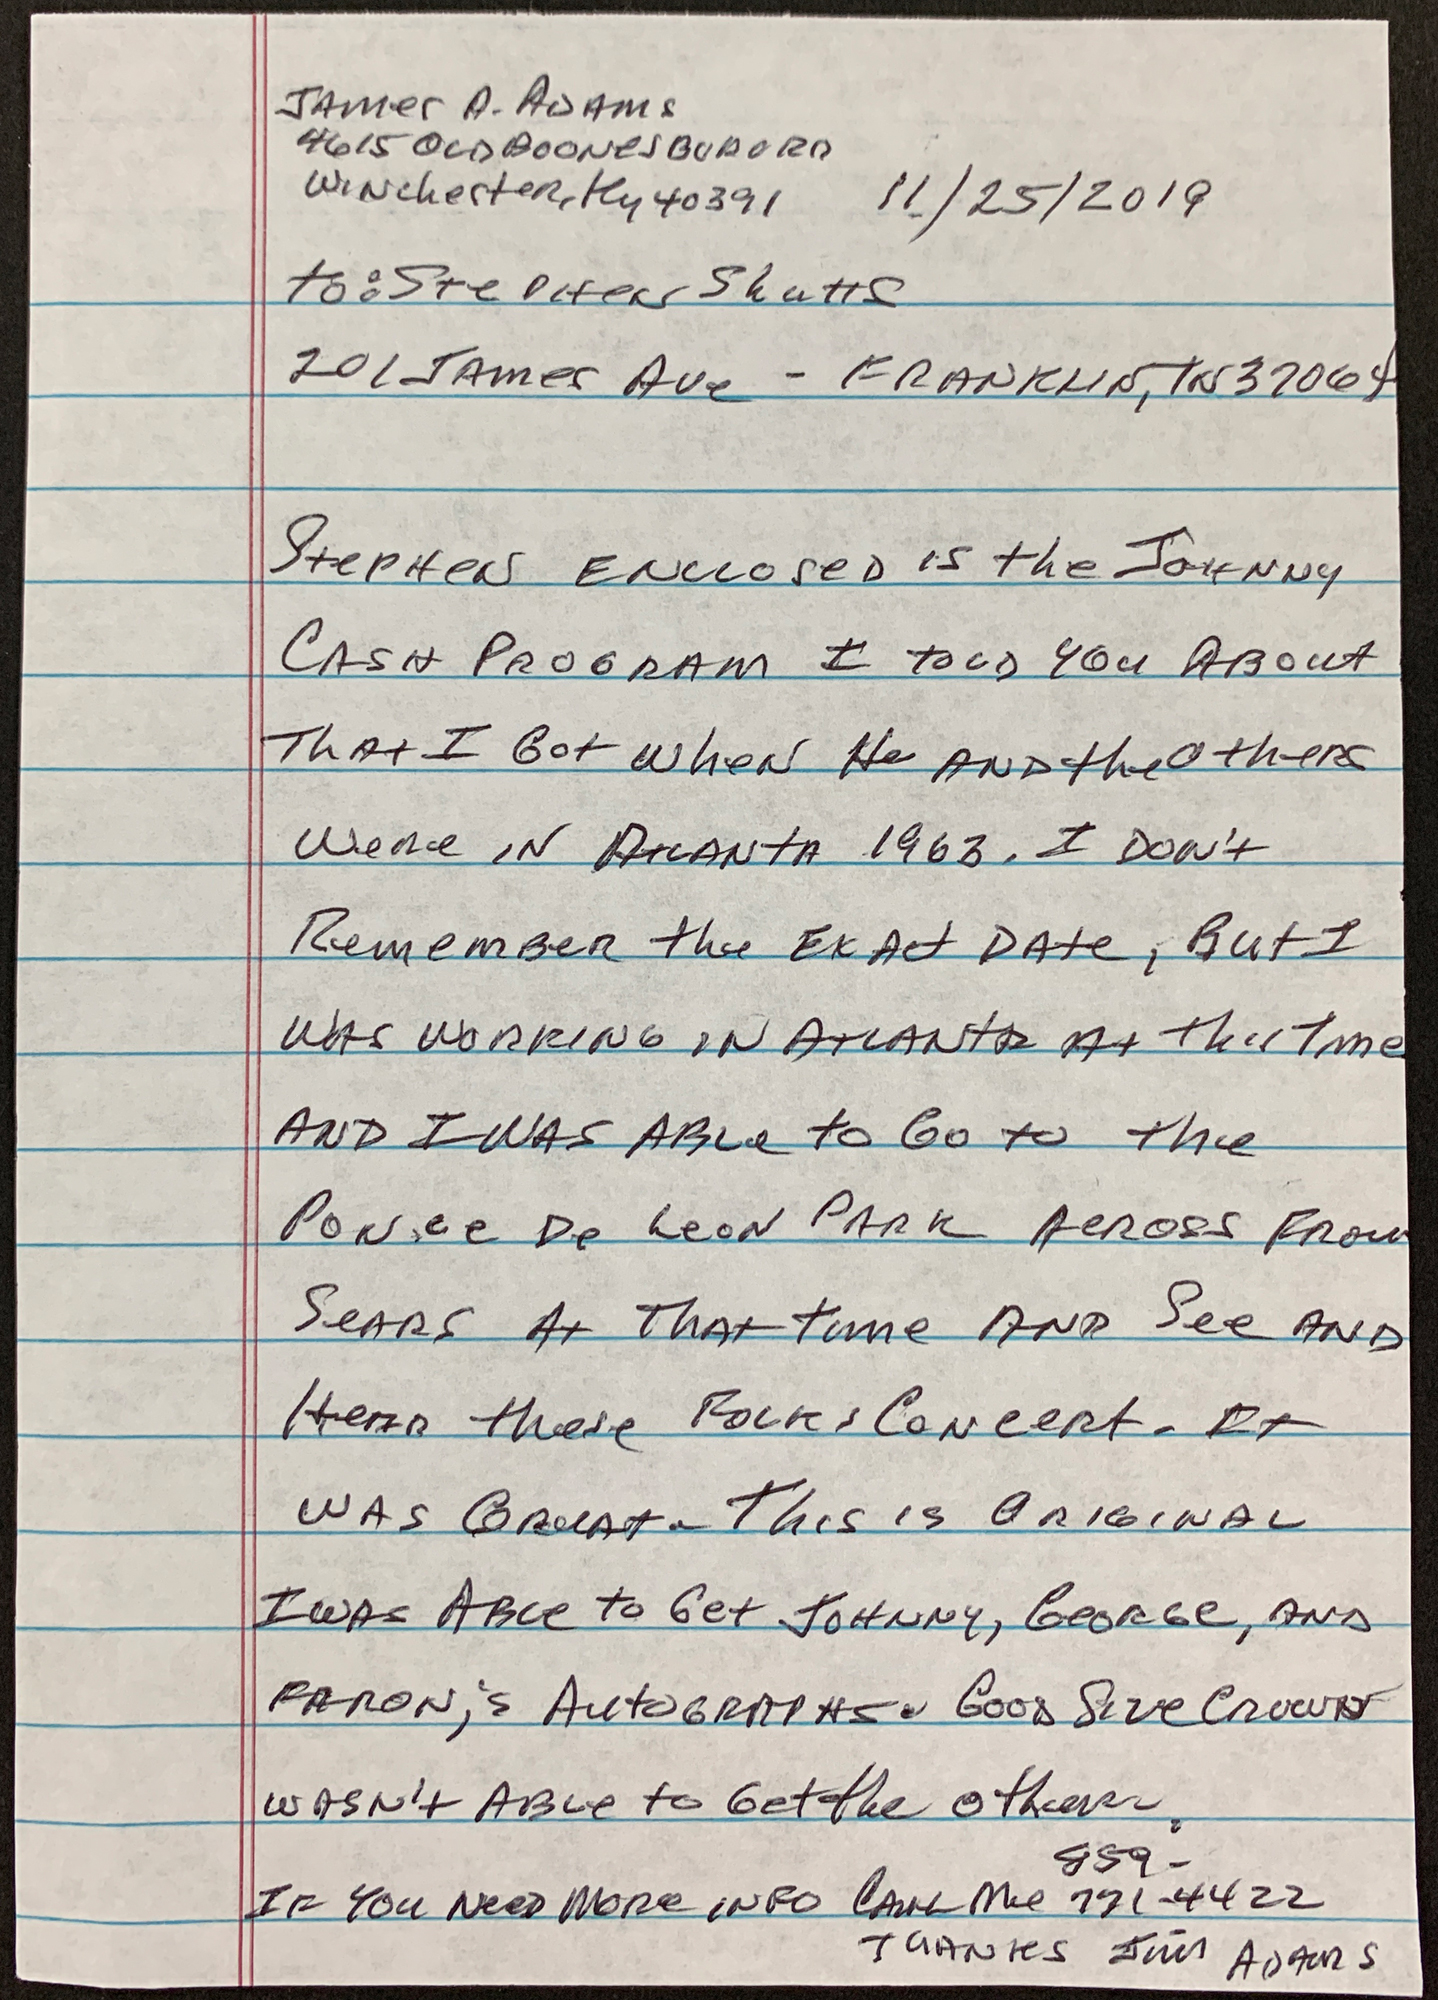 JAMES A. ADAMS
4615 OLD BOONESBORO RD
Winchester, Ky 40391 11/25/2019
to: Stephen Shutts
201 JAMES Ave - FRANKLIN, TN 37064
Stephen ENCLOSED is the JOHNNY
CASH PROGRAM I told you ABOUT
That I Got when He AND the others
were IN Atlanta 1963. I DON't
Remember the EXAct DAte, But I
WAS WORKING IN AtLANTA At This Time
AND I WAS ABLe to Go to the
PONce De Leon PARK ACROSS FROM
SEARS At That time AND See AND
HeAR these Folks CONCERt. It
WAS GReAt. This is ORIGINAL
I WAS ABLe to Get JOHNNY, GeORGe, AND
FARON,'s AutOGRAPHS. Good Size CROWD
WASN't ABLe to Get the others.
859-
IF You NeeD More INFO CALL Me 771-4422
THANKS Jim ADAMS